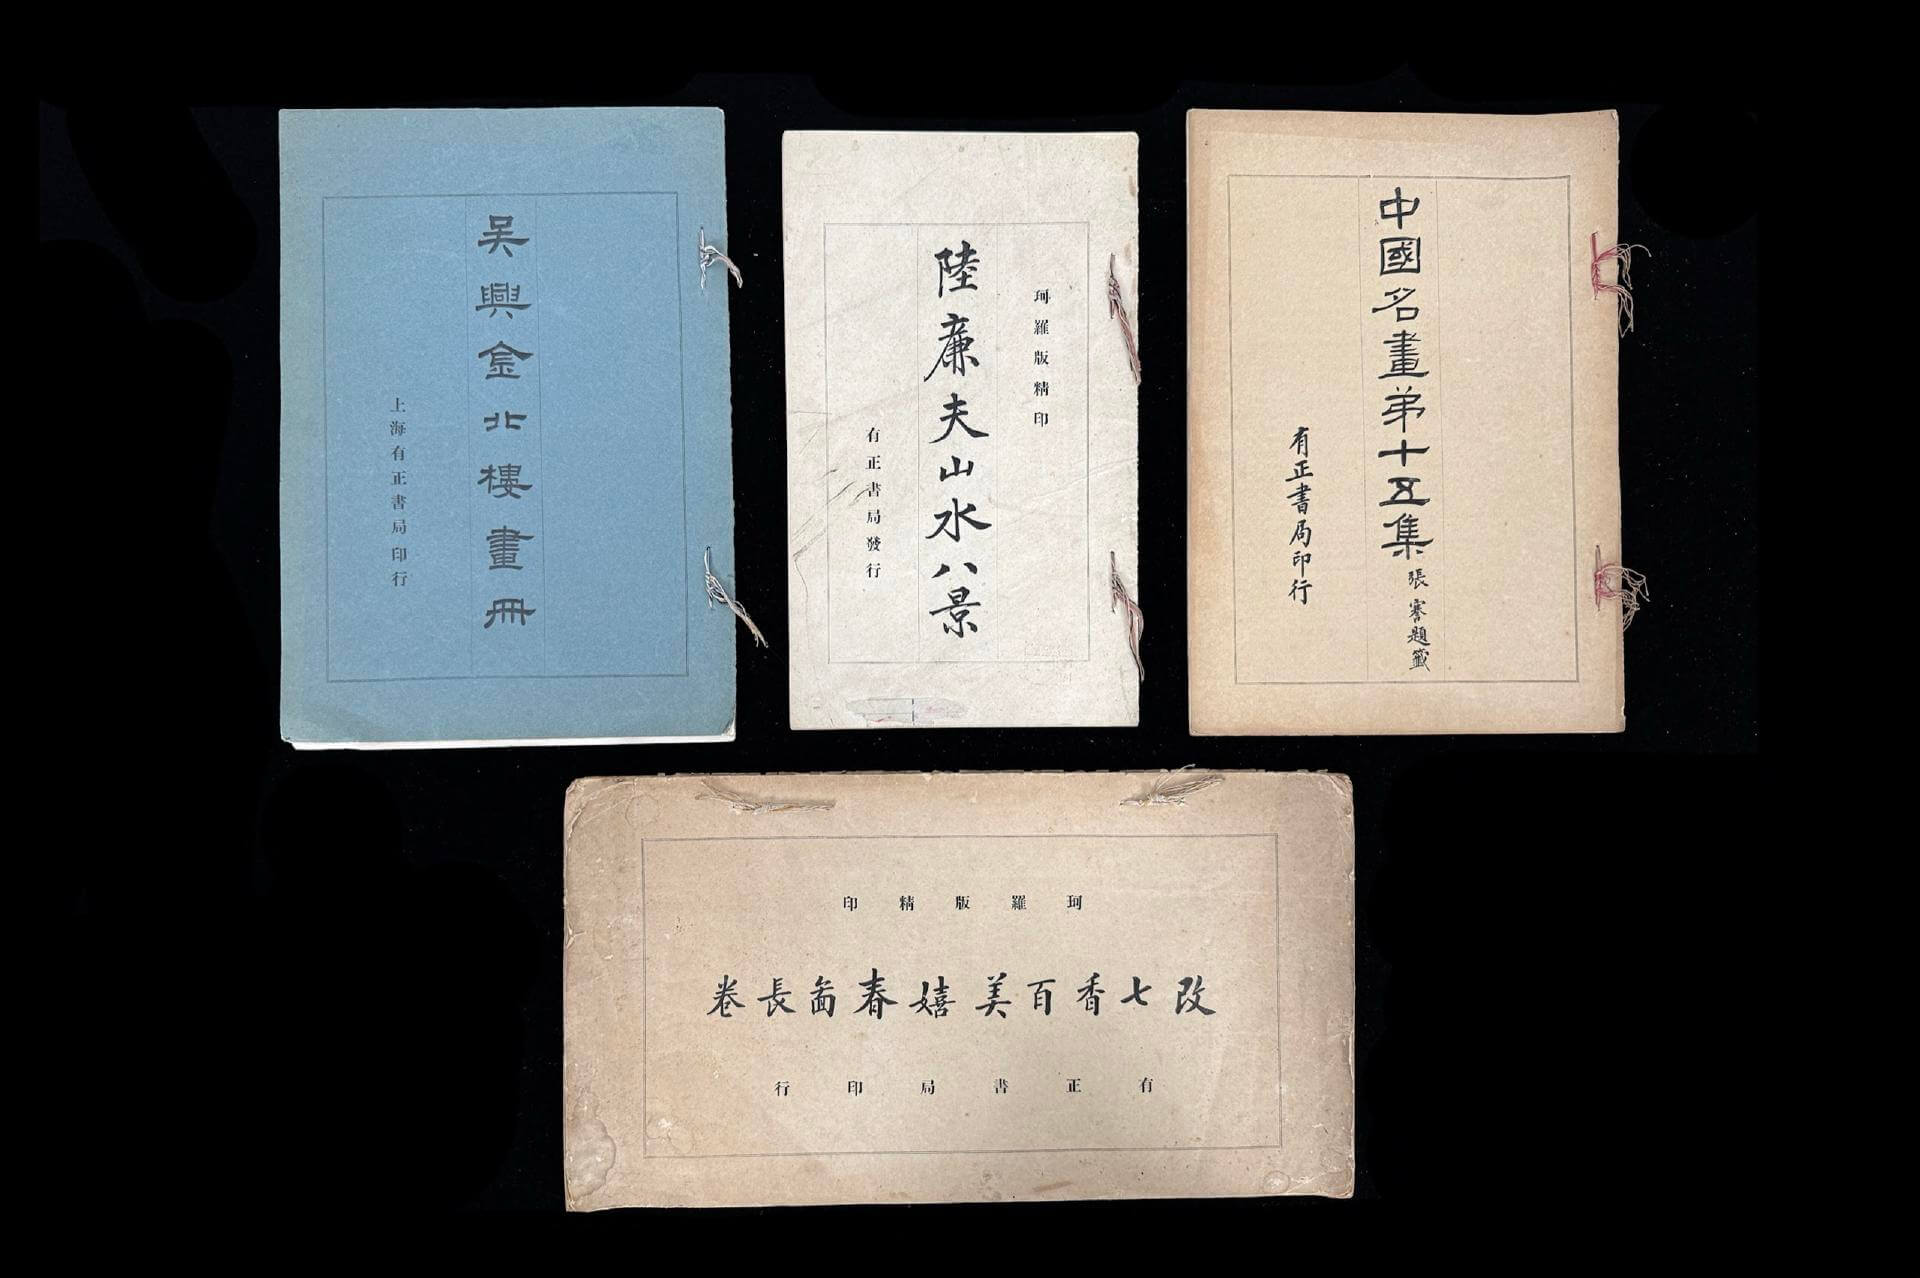 吳興金北樓畫冊
上海有正書局印行
珂羅版精印
陸廉夫山水八景
有正書局發行
中國名畫弟十五集
張謇題籤
有正書局印行
珂羅版精印
改七香百美嬉春啚長卷
有正書局印行